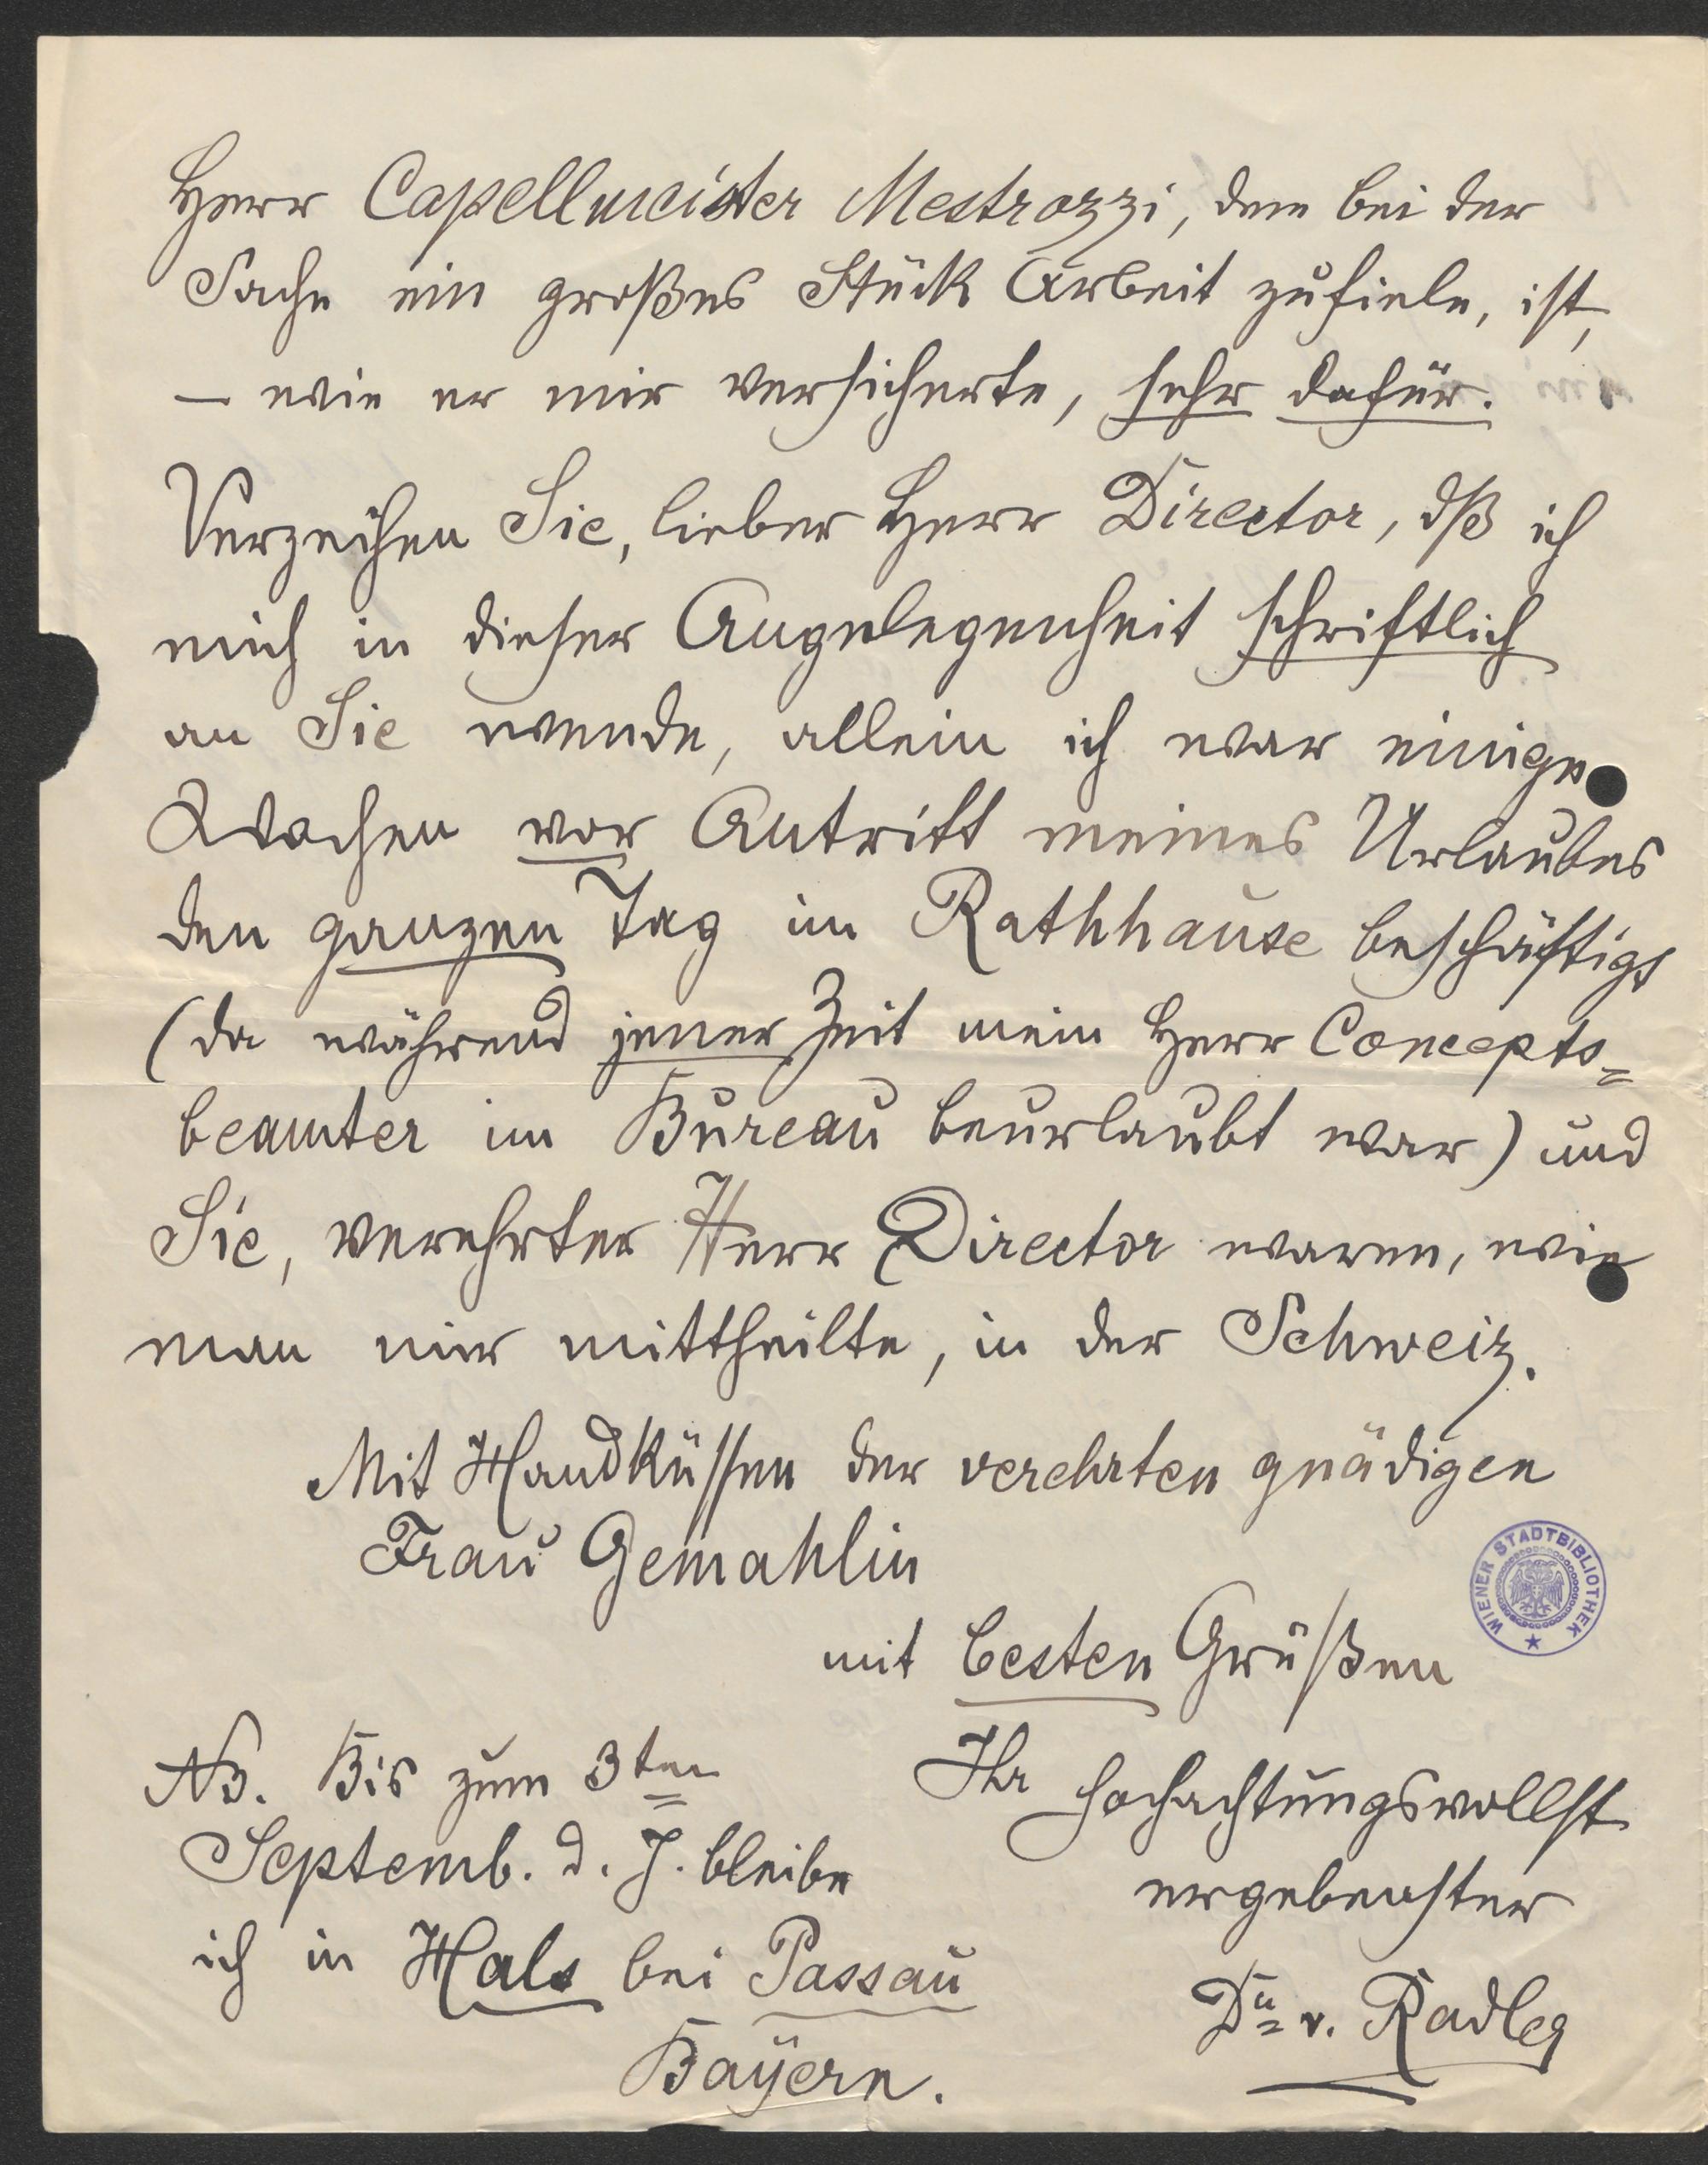 Herr Capellmeister Mestrozzi, dem bei der
Sache ein großes Stück Arbeit zufiele, ist,
– wie er mir versicherte, sehr dafür.
Verzeihen Sie, lieber Herr Director, dß ich
mich in dieser Angelegenheit schriftlich
an Sie wende, allein ich war einige
Wochen vor Antritt meines Urlaubes
den ganzen Tag im Rathhause beschäftigt
(da während jener Zeit mein Herr Concepts=
beamter im Bureau beurlaubt war) und
Sie, verehrter Herr Director waren, wie
man mir mittheilte, in der Schweiz.
Mit Handküssen der verehrten gnädigen
Frau Gemahlin
WIENER STADTBIBLIOTHEK
mit besten Grüßen
Ihr hochachtungsvollst
ergebenster
Dr v. Radler
NB. Bis zum 3ten
Septemb. d. J. bleibe
ich in Hals bei Passau
Bayern.